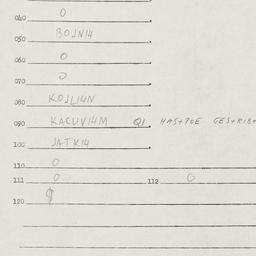 040 O
050 BOJNI4
060 O
070 O
080 KOJLI4N
090 KACUVI4M Q1 HAS+POE GES+RIB+
100 JATKI4
110 O
111 O 112 O
120 $